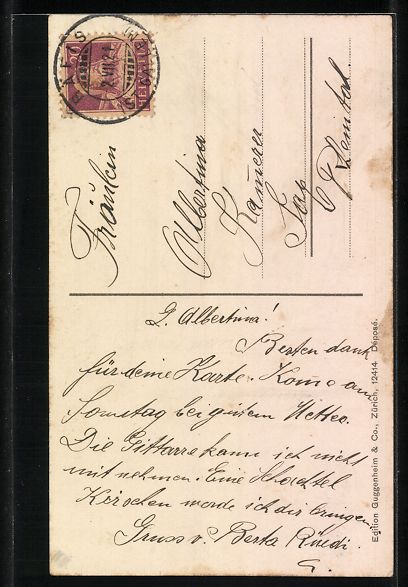 Fräulein
Albertina
Kamerer
Sax
L. Albertina!
Besten dank
für deine Karte. Kome am
Somstag bei gutem Wetter.
Die Gittarre kann ich nicht
mit nehmen. Eine Schachtel
Kirschen werde ich dir bringen
Gruss v. Berta Rüedi.
Edition Guggenheim & Co., Zürich, 12414. Déposé.